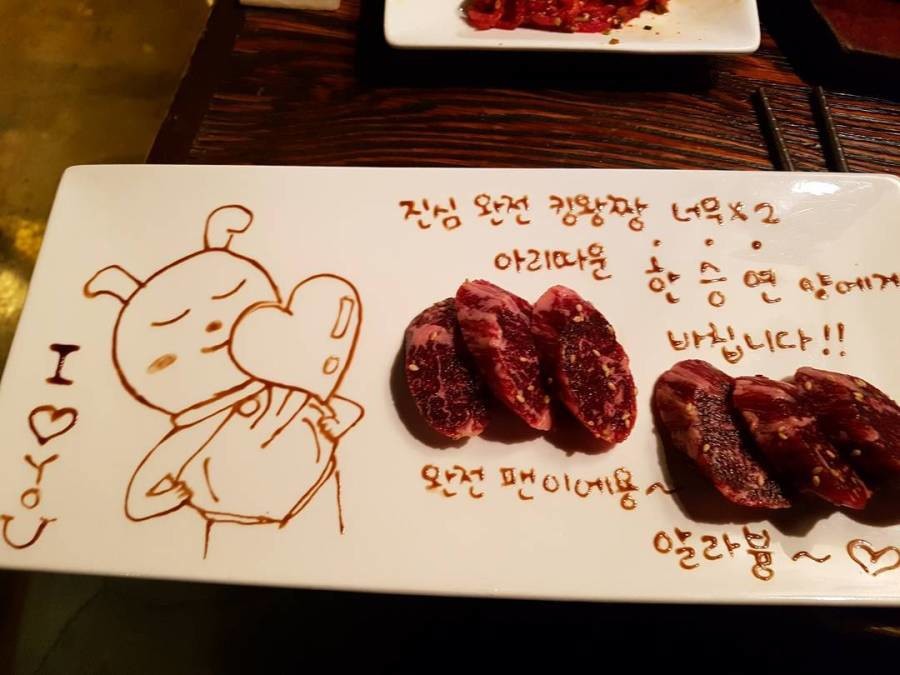 진심 완전 킹왕짱 너무x2
아리따운 한승연 양에게
바칩니다!!
완전 팬이에용~
알라븅~♡
I ♡ YoU